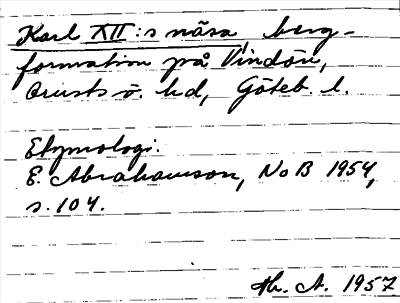 Karl XII:s näsa, berg-
formation på Vindön,
Orusts ö. hd, Göteb. l.
Etymologi.
E. Abrahamson, NoB 1954,
s. 104.
Th. A. 1957